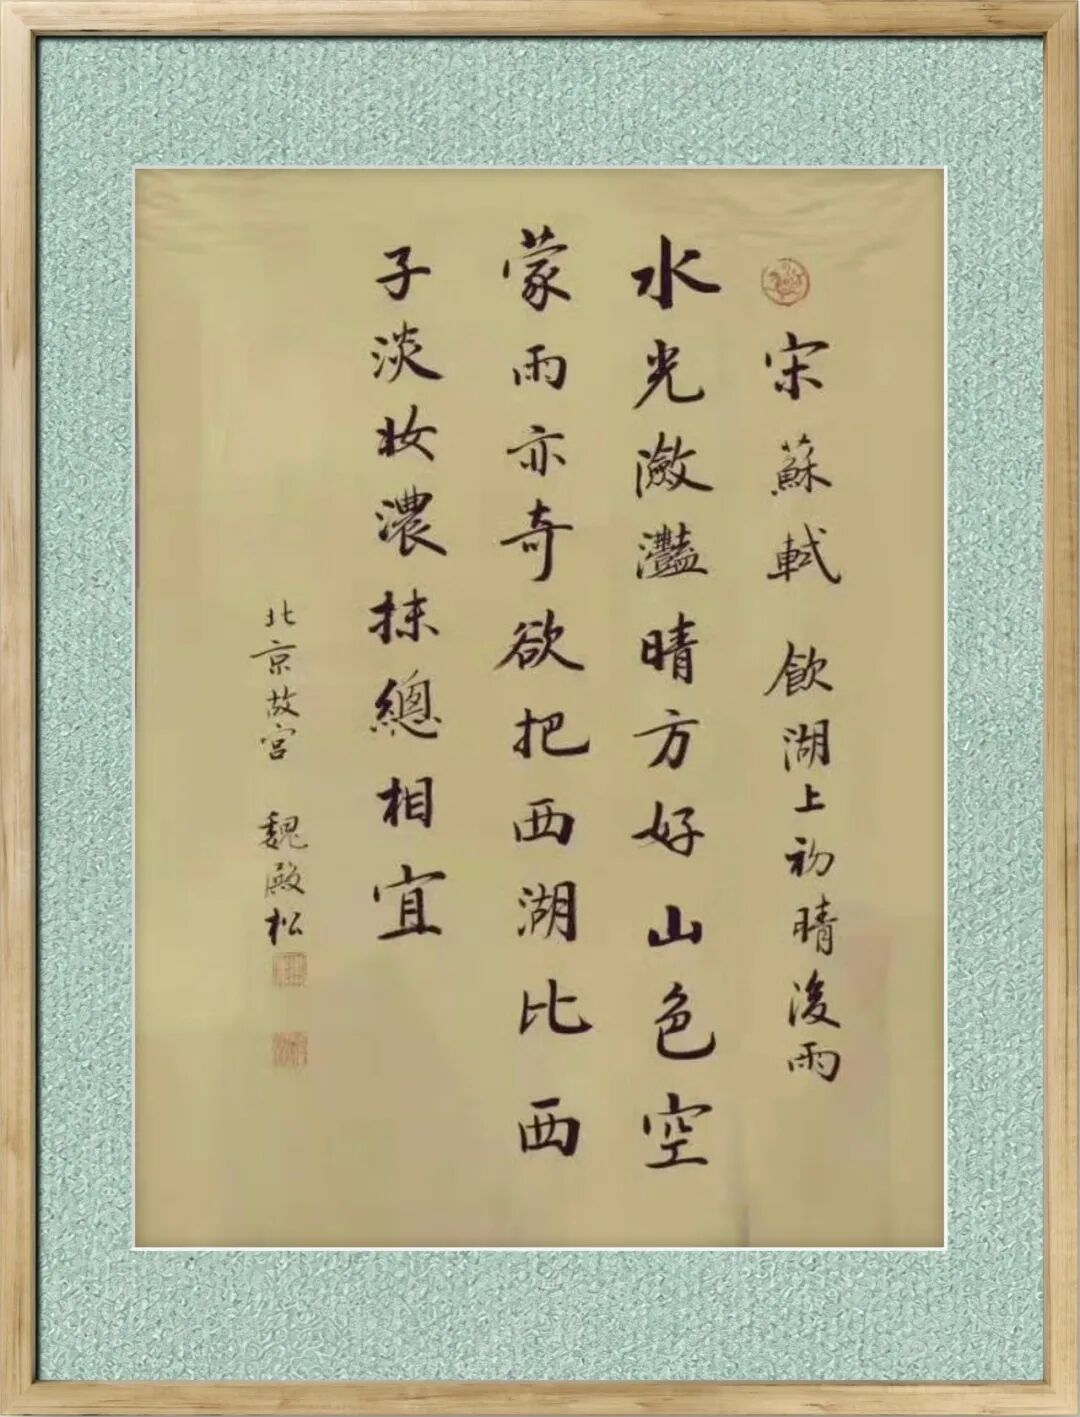 宋蘇軾 飲湖上初晴後雨
水光瀲灩晴方好山色空
蒙雨亦奇欲把西湖比西
子淡妝濃抹總相宜
北京故宮 魏殿松